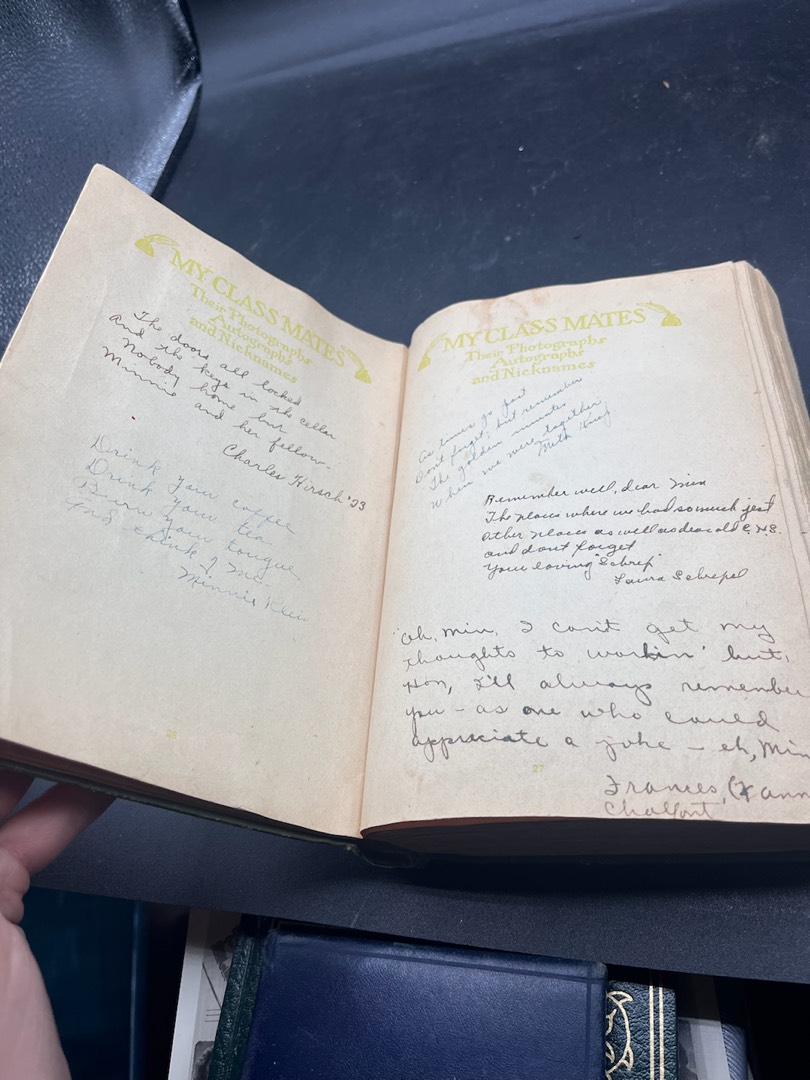 MY CLASS MATES
Their Photographs
Autographs
and Nicknames
The doors all locked
and the keys in the cellar
Nobody home but
Minnie and her fellow.
Charles Hirsch '23
Drink your coffee
Drink your tea
Burn your tongue
And think of me.
Minnie Klein
MY CLASS MATES
Their Photographs
Autographs
and Nicknames
As times go past
Dont forget; but remember
The golden minutes
When we were together
King
Remember well, dear Min
The places where we had so much jest
Other places as well as dear old C.H.S.
and dont forget
Your loving "Schrep"
Laura Schrepel
Oh, Min, I can't get my
thoughts to workin' but,
Hon, I'll always remember
you – as one who could
appreciate a joke – eh, Min
27
Frances, (Fann
Chalfant